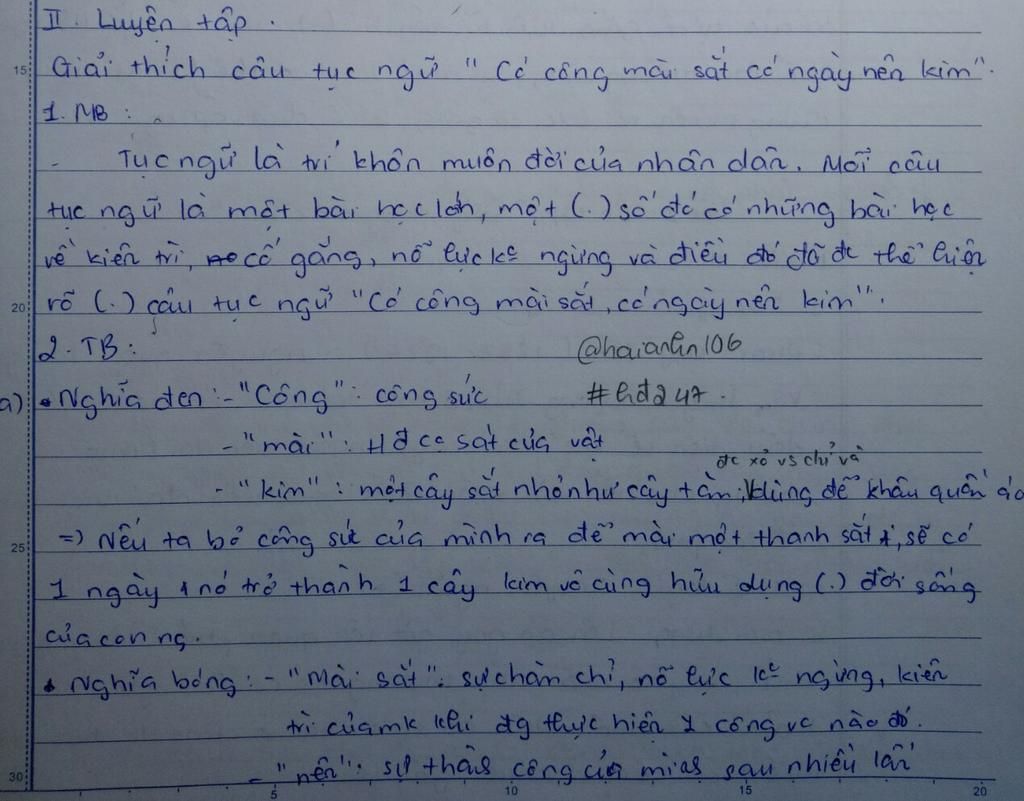 II. Luyện tập.
15 Giải thích câu tục ngữ "Có công mài sắt có ngày nên kim".
1. MB:
- Tục ngữ là trí khôn muôn đời của nhân dân. Mỗi câu
tục ngữ là một bài học lớn, một (.) số đó có những bài học
về kiên trì, cố gắng, nỗ lực kº ngừng và điều đó đã đc thể hiện
20 rõ (.) câu tục ngữ "Có công mài sắt, có ngày nên kim".
2. TB: @haianhn106
a) • Nghĩa đen: - "Công": công sức #hđ247.
- "mài": HĐ cọ sát của vật
đc xỏ vs chỉ và
- "kim": một cây sắt nhỏ như cây tăm, dùng để khâu quần áo
25 => Nếu ta bỏ công sức của mình ra để mài một thanh sắt, sẽ có
1 ngày nó trở thành 1 cây kim vô cùng hữu dụng (.) đời sống
của con ng.
• Nghĩa bóng: - "Mài sắt": sự chăm chỉ, nỗ lực kº ngừng, kiên
trì của mk khi đg thực hiện 1 công vc nào đó.
30 - "nên": sự thành công của mình sau nhiều lần
5 10 15 20